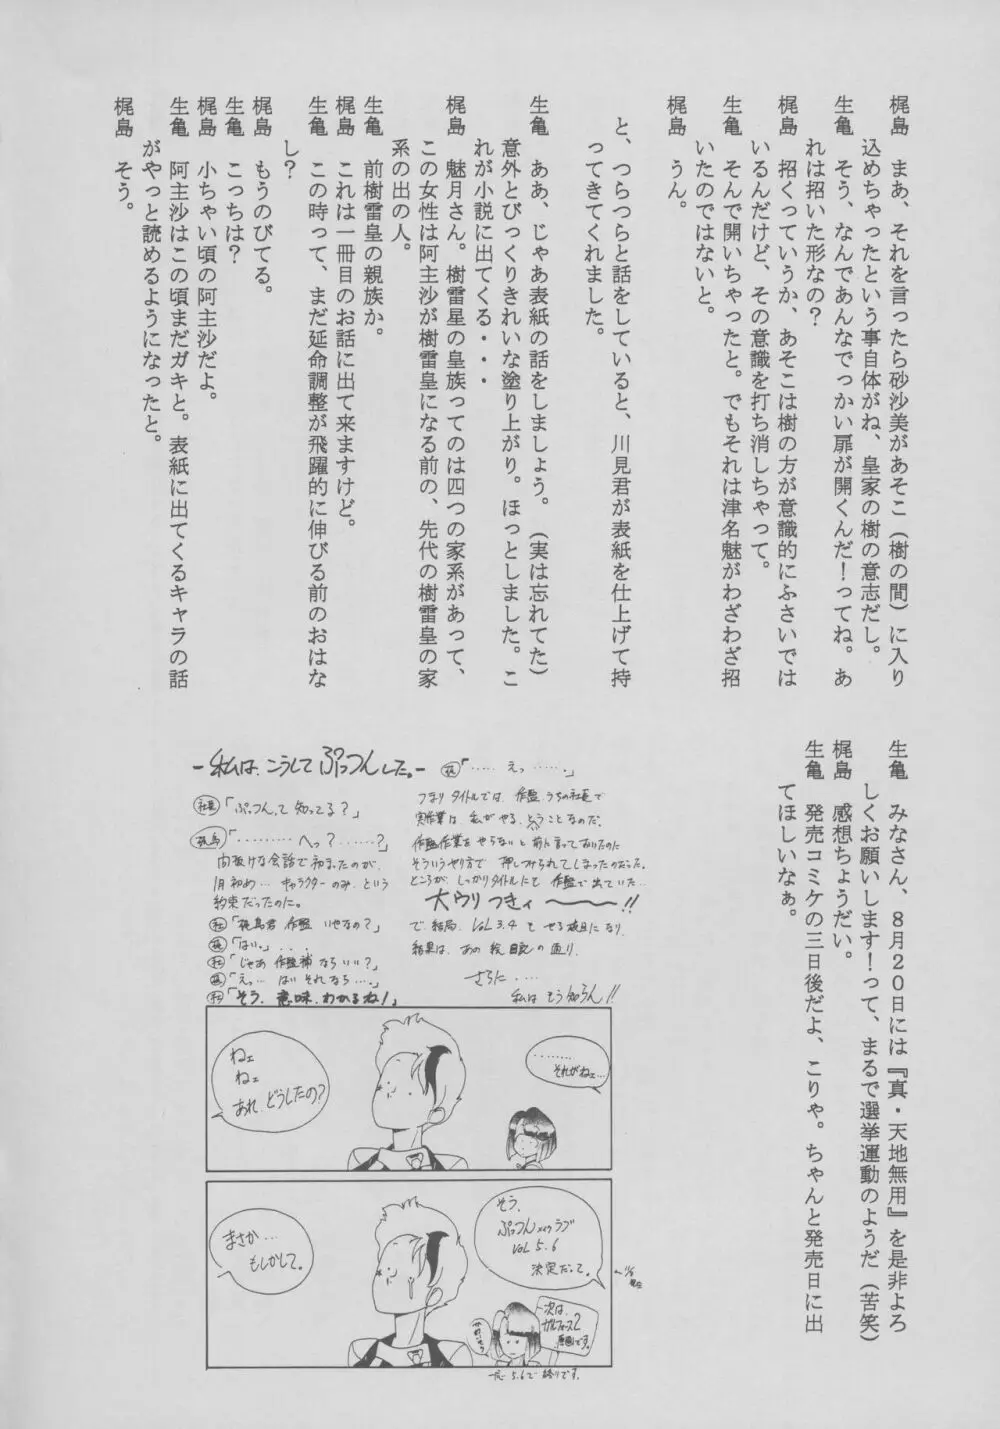 梶島　まあ、それを言ったら砂沙美があそこ（樹の間）に入り
込めちゃったという事自体がね、皇家の樹の意志だし。
生亀　そう、なんであんなでっかい扉が開くんだ！ってね。あ
れは招いた形なの？
梶島　招くっていうか、あそこは樹の方が意識的にふさいでは
いるんだけど、その意識を打ち消しちゃって。
生亀　そんで開いちゃったと。でもそれは津名魅がわざわざ招
いたのではないと。
梶島　うん。
と、つらつらと話をしていると、川見君が表紙を仕上げて持
ってきてくれました。
生亀　ああ、じゃあ表紙の話をしましょう。（実は忘れてた）
意外とびっくりきれいな塗り上がり。ほっとしました。こ
れが小説に出てくる・・・
梶島　魅月さん。樹雷星の皇族ってのは四つの家系があって、
この女性は阿主沙が樹雷皇になる前の、先代の樹雷皇の家
系の出の人。
生亀　前樹雷皇の親族か。
梶島　これは一冊目のお話に出て来ますけど。
生亀　この時って、まだ延命調整が飛躍的に伸びる前のおはな
し？
梶島　もうのびてる。
生亀　こっちは？
梶島　小ちゃい頃の阿主沙だよ。
生亀　阿主沙はこの頃まだガキと。表紙に出てくるキャラの話
がやっと読めるようになったと。
梶島　そう。
生亀　みなさん、８月２０日には『真・天地無用』を是非よろ
しくお願いします！って、まるで選挙運動のようだ（苦笑）
梶島　感想ちょうだい。
生亀　発売コミケの三日後だよ、こりゃ。ちゃんと発売日に出
てほしいなぁ。
-私は、こうしてぷっつんした。-
社長「ぷっつんって知ってる？」
梶島「‥‥‥‥へっ？‥‥‥？」
間抜けな会話で初まったのが、
1月初め…キャラクターのみ、という
約束だったのに。
社「梶島君 作監 いやなの？」
梶「はい。」...
社「じゃあ 作監補 ならいい？」
梶「えっ… はい それなら…。」
社「そう、意味、わかるね！」
梶「‥‥‥えっ‥‥‥。」
つまり タイトルでは、作監、うちの社長で
実作業は 私がやる、とうことなのだ、
作監作業を やらないと 前に言っておいたのに
そういうやり方で 押しつけられてしまったのだった。
ところが、しっかりタイトルにも 作監で出ていた…
大ウソつきィ〜〜〜!!
で、結局、Vol 3.4 も やる破目になり、
結果は、あの 絵 の通り、
さらに・・・
私は もう知らん!!
ねェ
ねェ
あれ、どうしたの？
‥‥‥‥
それがねェ…
まさか…
もしかして。
そう、
ぷっつんメイクラブ
Vol 5.6
決定だって。
次は、
ガルフォース2
原画です。
5.6で終りです。